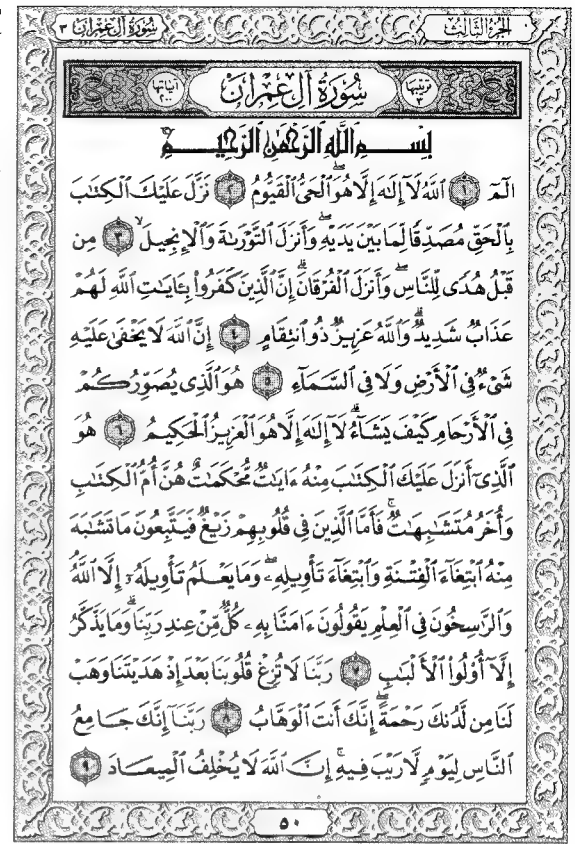 الجزء الثالث
سورة آل عمران ٣
ترتيبها ٣
سُورَةُ آلِ عِمْرَانَ
آياتها ٢٠٠
بِسْمِ ٱللَّهِ ٱلرَّحْمَٰنِ ٱلرَّحِيمِ
الٓمٓ ١ ٱللَّهُ لَآ إِلَٰهَ إِلَّا هُوَ ٱلْحَىُّ ٱلْقَيُّومُ ٢ نَزَّلَ عَلَيْكَ ٱلْكِتَٰبَ
بِٱلْحَقِّ مُصَدِّقًا لِّمَا بَيْنَ يَدَيْهِ وَأَنزَلَ ٱلتَّوْرَىٰةَ وَٱلْإِنجِيلَ ٣ مِن
قَبْلُ هُدًى لِّلنَّاسِ وَأَنزَلَ ٱلْفُرْقَانَ إِنَّ ٱلَّذِينَ كَفَرُوا۟ بِـَٔايَٰتِ ٱللَّهِ لَهُمْ
عَذَابٌ شَدِيدٌ وَٱللَّهُ عَزِيزٌ ذُو ٱنتِقَامٍ ٤ إِنَّ ٱللَّهَ لَا يَخْفَىٰ عَلَيْهِ
شَىْءٌ فِى ٱلْأَرْضِ وَلَا فِى ٱلسَّمَآءِ ٥ هُوَ ٱلَّذِى يُصَوِّرُكُمْ
فِى ٱلْأَرْحَامِ كَيْفَ يَشَآءُ لَآ إِلَٰهَ إِلَّا هُوَ ٱلْعَزِيزُ ٱلْحَكِيمُ ٦ هُوَ
ٱلَّذِىٓ أَنزَلَ عَلَيْكَ ٱلْكِتَٰبَ مِنْهُ ءَايَٰتٌ مُّحْكَمَٰتٌ هُنَّ أُمُّ ٱلْكِتَٰبِ
وَأُخَرُ مُتَشَٰبِهَٰتٌ فَأَمَّا ٱلَّذِينَ فِى قُلُوبِهِمْ زَيْغٌ فَيَتَّبِعُونَ مَا تَشَٰبَهَ
مِنْهُ ٱبْتِغَآءَ ٱلْفِتْنَةِ وَٱبْتِغَآءَ تَأْوِيلِهِۦ وَمَا يَعْلَمُ تَأْوِيلَهُۥٓ إِلَّا ٱللَّهُ
وَٱلرَّٰسِخُونَ فِى ٱلْعِلْمِ يَقُولُونَ ءَامَنَّا بِهِۦ كُلٌّ مِّنْ عِندِ رَبِّنَا وَمَا يَذَّكَّرُ
إِلَّآ أُو۟لُوا۟ ٱلْأَلْبَٰبِ ٧ رَبَّنَا لَا تُزِغْ قُلُوبَنَا بَعْدَ إِذْ هَدَيْتَنَا وَهَبْ
لَنَا مِن لَّدُنكَ رَحْمَةً إِنَّكَ أَنتَ ٱلْوَهَّابُ ٨ رَبَّنَآ إِنَّكَ جَامِعُ
ٱلنَّاسِ لِيَوْمٍ لَّا رَيْبَ فِيهِ إِنَّ ٱللَّهَ لَا يُخْلِفُ ٱلْمِيعَادَ ٩
٥٠